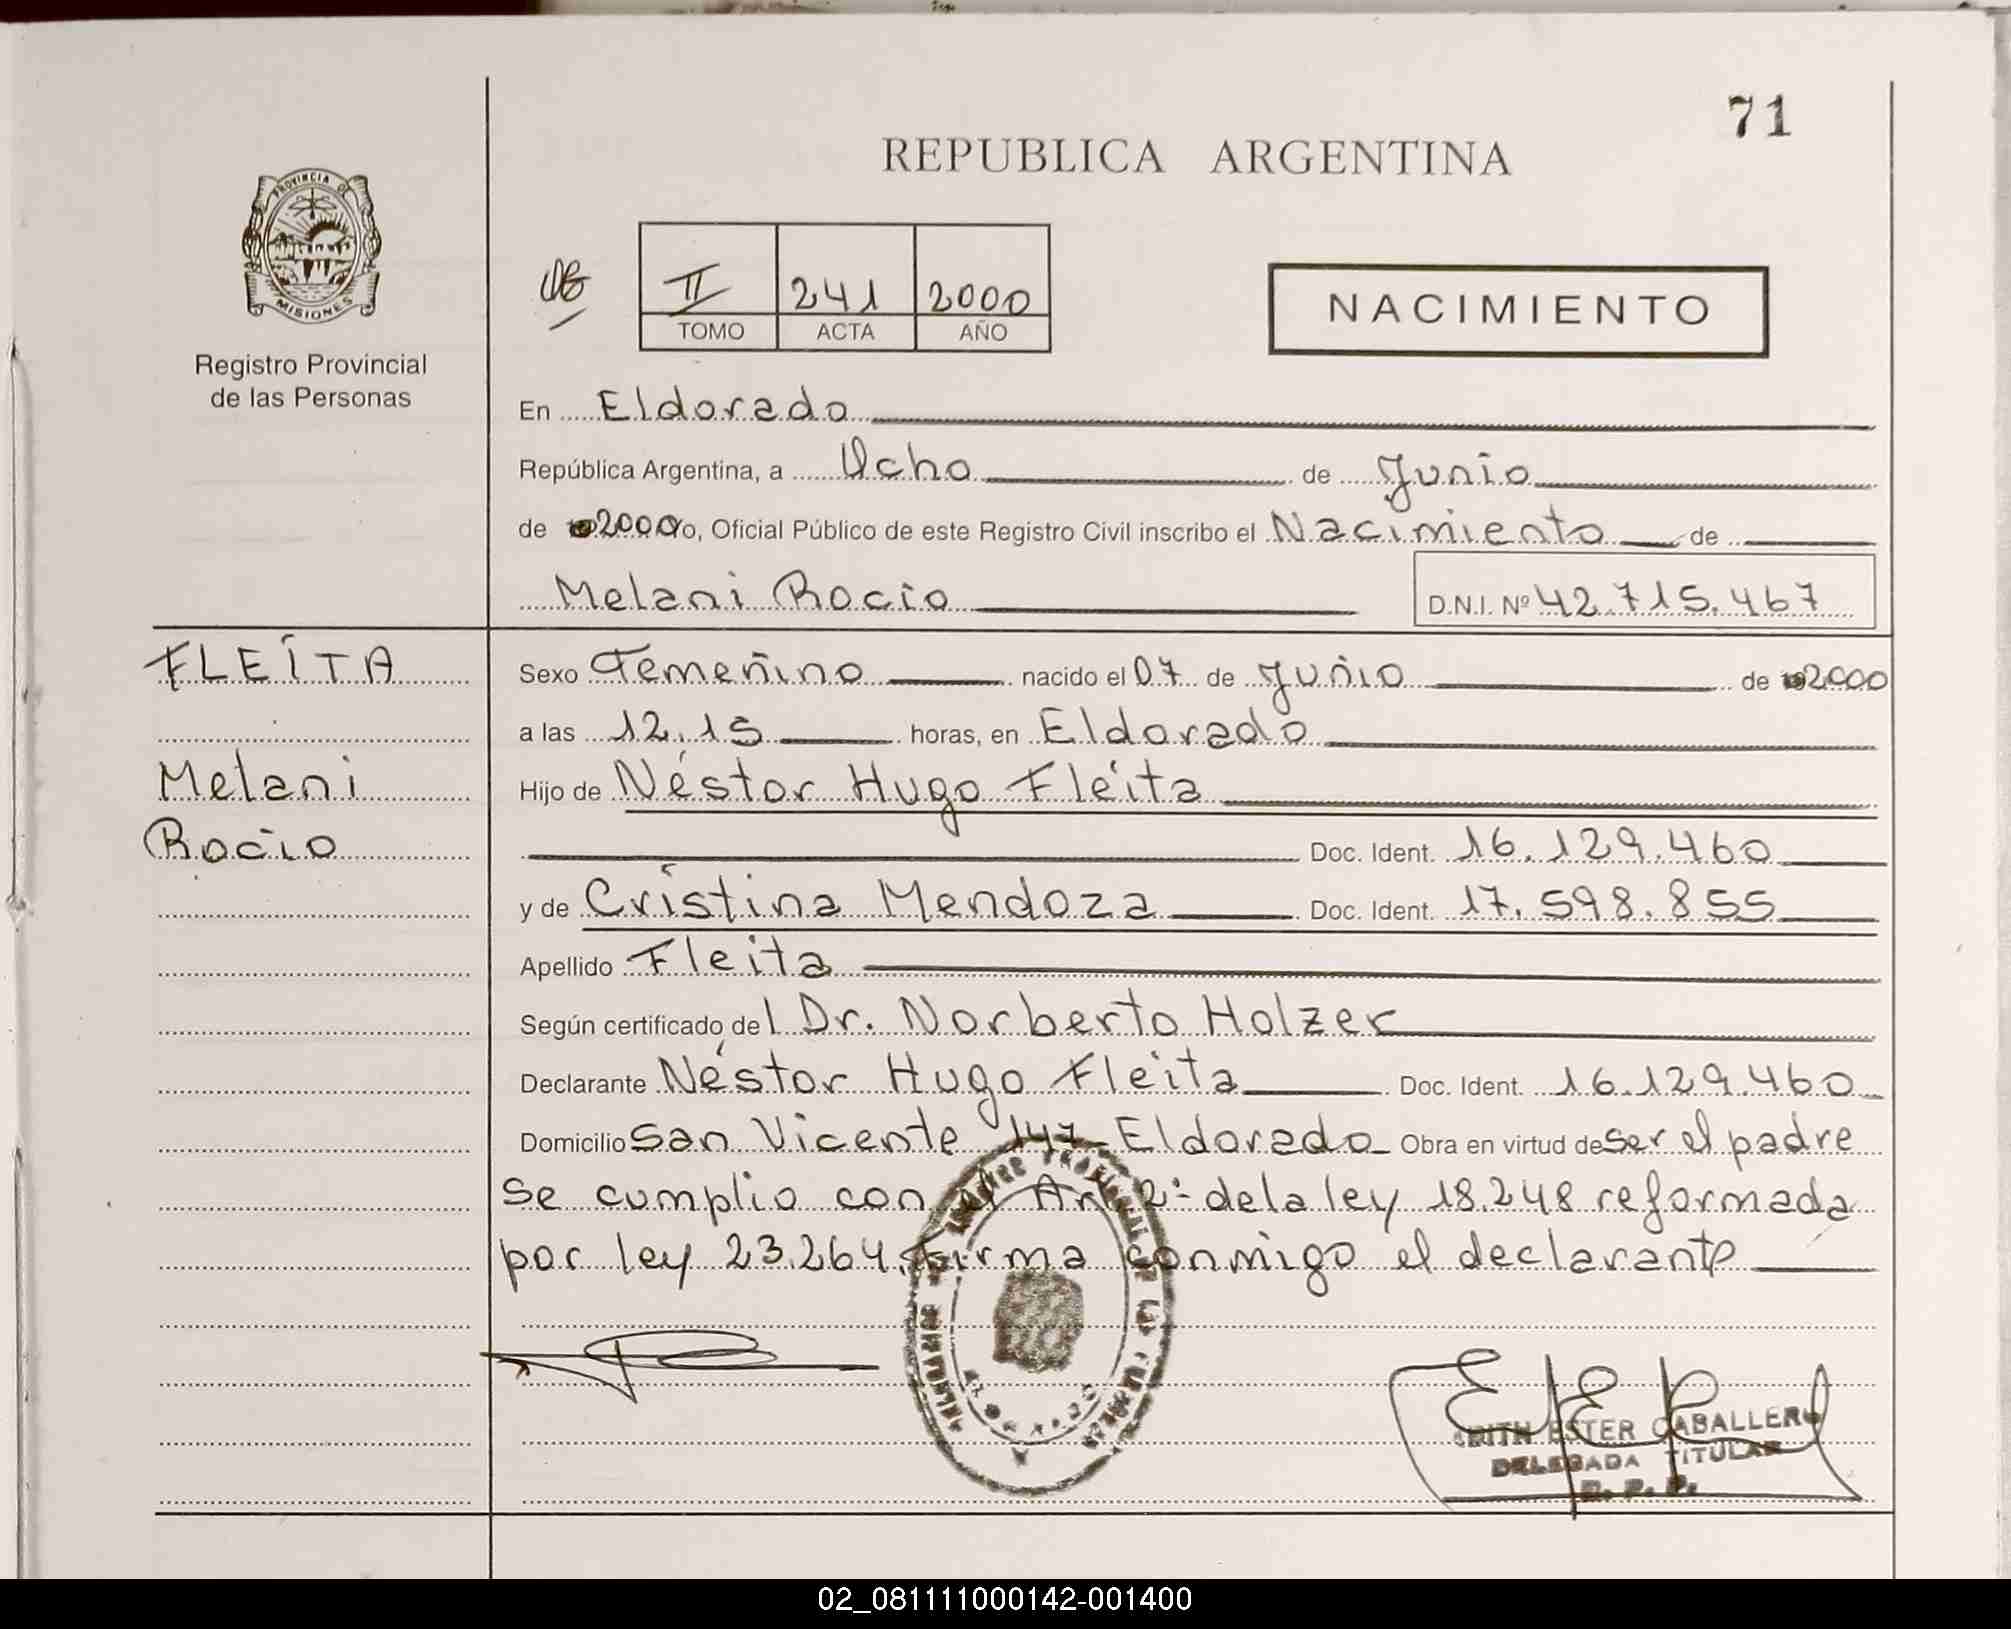 71
REPUBLICA ARGENTINA
PROVINCIA DE
MISIONES
Registro Provincial
de las Personas
II 241 2000
TOMO ACTA AÑO
NACIMIENTO
En Eldorado
República Argentina, a Ocho de Junio
de 2000 yo, Oficial Público de este Registro Civil inscribo el Nacimiento de
Melani Rocio D.N.I. Nº 42.715.467
FLEITA
Melani
Rocio
Sexo Femenino nacido el 07 de Junio de 2000
a las 12.15 horas, en Eldorado
Hijo de Néstor Hugo Fleita
Doc. Ident. 16.129.460
y de Cristina Mendoza Doc. Ident. 17.598.855
Apellido Fleita
Según certificado del Dr. Norberto Holzer
Declarante Néstor Hugo Fleita Doc. Ident. 16.129.460
Domicilio San Vicente 147 - Eldorado Obra en virtud de ser el padre
Se cumplio con el Art 2º de la ley 18.248 reformada
por ley 23.264. Firma conmigo el declarante
EDITH ESTER CABALLERO
DELEGADA TITULAR
R. P. P.
02_081111000142-001400